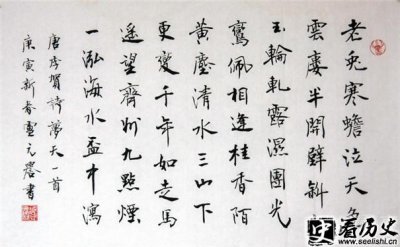 老兔寒蟾泣天色
雲廔半開壁斜
玉輪軋露濕團光
鸞佩相逢桂香陌
黃塵清水三山下
更變千年如走馬
遙望齊州九點煙
一泓海水盃中瀉
唐李賀詩夢天一首
庚寅新春元書
看历史
www.seelishi.cn